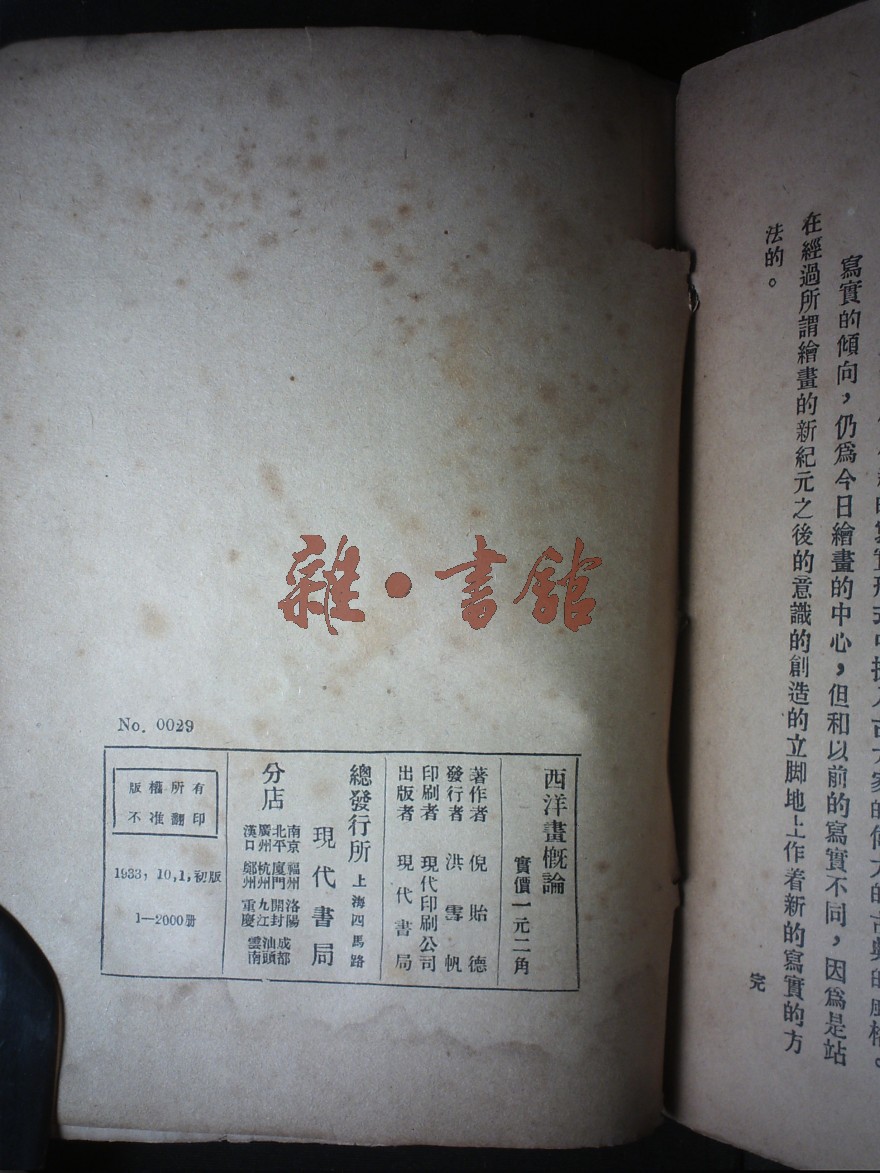 寫實的傾向，仍爲今日繪畫的中心，但和以前的寫實不同，因爲是站
在經過所謂繪畫的新紀元之後的意識的創造的立脚地上作着新的寫實的方
法的。
完
雜·書館
No. 0029
西洋畫概論
實價一元二角
著作者 倪貽德
發行者 洪雪帆
印刷者 現代印刷公司
出版者 現代書局
總發行所 上海四馬路
現代書局
分店
南京 福州 洛陽 成都
北平 廈門 開封 汕頭
廣州 杭州 九江 雲南
漢口 鄭州 重慶
版權所有
不准翻印
1933, 10, 1, 初版
1—2000册